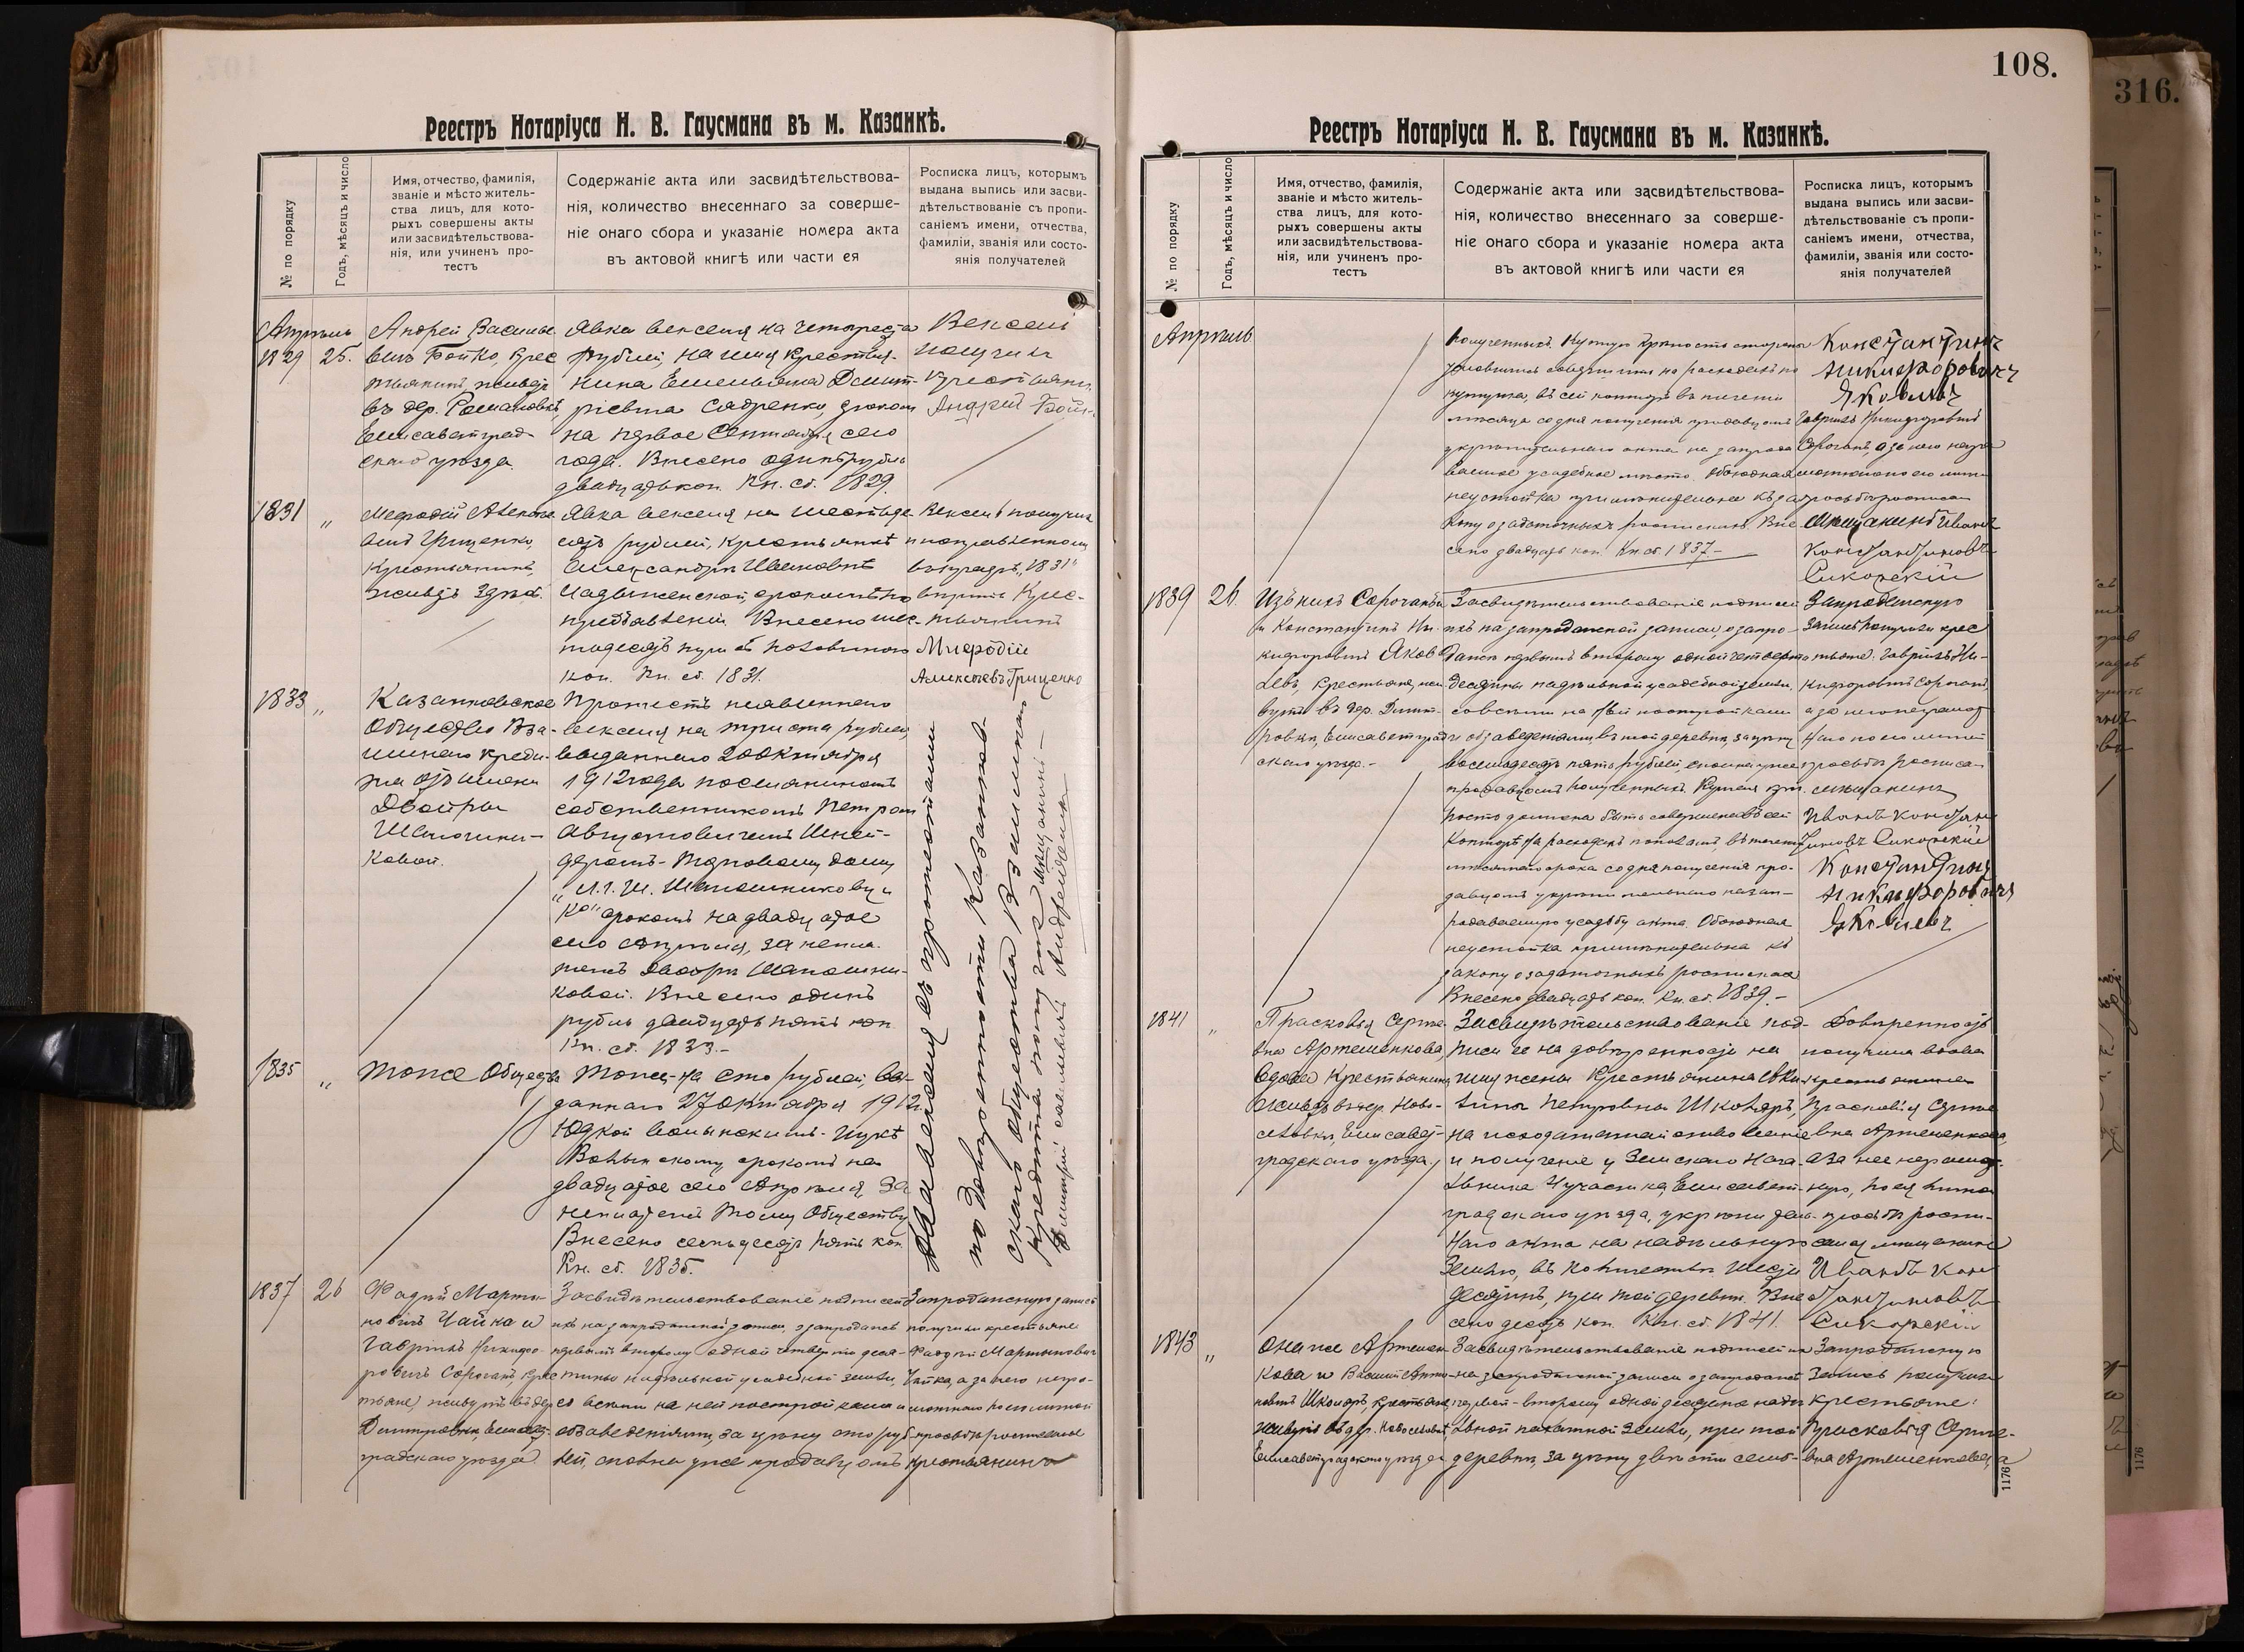 Реестръ Нотаріуса Н. В. Гаусмана въ м. Казанкѣ.
№ по порядку
Годъ, мѣсяцъ и число
Имя, отчество, фамилія,
званіе и мѣсто житель-
ства лицъ, для кото-
рыхъ совершены акты
или засвидѣтельствова-
нія, или учиненъ про-
тестъ
Содержаніе акта или засвидѣтельствова-
нія, количество внесеннаго за соверше-
ніе онаго сбора и указаніе номера акта
въ актовой книгѣ или части ея
Росписка лицъ, которымъ
выдана выпись или засви-
дѣтельствованіе съ пропи-
саніемъ имени, отчества,
фамиліи, званія или состо-
янія получателей
Апрѣль
1829 25.
Андрей Василье
вичъ Бойко, крес
тьянинъ, живетъ
въ дер. Романовкѣ,
Елисаветград-
скаго уѣзда.
Явка векселя на четыреста
рублей, на имя крестья-
нина Емельяна Дмит-
ріевича срокомъ
на первое Сентября сего
года. Внесено одинъ рубль
двадцать коп. Кн. сб. 1829.
Вексель
получилъ
крестьянинъ
Андрей Бойко
1831 "
Мефодій Алексѣе
вичъ Гриценко,
крестьянинъ,
живетъ здѣсь.
Явка векселя на шестьде
сятъ рублей, крестьянкѣ
Александрѣ Ивановнѣ
срокомъ по
предъявленіи. Внесено шес-
надцать съ половиною
коп. Кн. сб. 1831.
Вексель получилъ
"1831"
крес-
тьянинъ
Мефодій
Алексѣевъ Гриценко
1833 "
Казанковское
Общество Вза-
имнаго Креди-
та отъ имени
Двойры
Шапошни-
ковой.
Протестъ неявленнаго
векселя на триста рублей,
выданнаго 20 Октября
1912 года поселяниномъ
собственникомъ Петромъ
Августовичемъ Шней-
деромъ - Торговому дому
"Л. г. Ш. Шапошниковъ и
Ко" срокомъ на двадцатое
сего Апрѣля, за непла-
тежъ Двойры Шапошни-
ковой. Внесено одинъ
рубль двадцать пять коп.
Кн. сб. 1833.-
1835 "
Тоже Общество
Тоже - на сто рублей, вы-
даннаго 27 Октября 1912 г.
Юдкой Волынскимъ - Ицкѣ
Волынскому срокомъ на
двадцатое сего Апрѣля за
неплатежъ тому Обществу
Внесено семьдесятъ пять коп.
Кн. сб. 1835.
Два векселя съ протестами
по довѣренности Казанков-
скаго Общества Взаимнаго
Кредита получилъ мѣщанинъ -
Дмитрій Савельевичъ Андреященко
1837 26
Фадѣй Марты-
новичъ Чайка и
Гаврилъ Никифо-
ровичъ Сорочанъ, крес
тьяне, живутъ въ дер
Дмитровкѣ, Елисавет-
градскаго уѣзда
Засвидѣтельствованіе подписей
ихъ на запродажной записи, о запродажѣ
первымъ второму одной четверти деся-
тины надѣльной усадебной земли,
со всѣми на ней постройками и
обзаведеніями, за цѣну сто руб-
лей, сполна уже продавцомъ
Запродажную запись
получили крестьяне
Фадѣй Мартыновичъ
Чайка, а за него негра-
мотнаго по его личной
просьбѣ росписался
крестьянинъ
108.
Реестръ Нотаріуса Н. В. Гаусмана въ м. Казанкѣ.
№ по порядку
Годъ, мѣсяцъ и число
Имя, отчество, фамилія,
званіе и мѣсто житель-
ства лицъ, для кото-
рыхъ совершены акты
или засвидѣтельствова-
нія, или учиненъ про-
тестъ
Содержаніе акта или засвидѣтельствова-
нія, количество внесеннаго за соверше-
ніе онаго сбора и указаніе номера акта
въ актовой книгѣ или части ея
Росписка лицъ, которымъ
выдана выпись или засви-
дѣтельствованіе съ пропи-
саніемъ имени, отчества,
фамиліи, званія или состо-
янія получателей
Апрѣль
полученныхъ. Купчую крѣпость стороны
условились совершить на расходахъ по
въ сей конторѣ въ теченіи
мѣсяца со дня полученія продавцомъ
укрѣпительнаго акта на запрода
ваемое усадебное мѣсто. Обоюдная
неустойка примѣнительна къ за
кону о задаточныхъ роспискахъ. Вне
сено двадцать коп. Кн. сб. 1837-
Константинъ
Никифоровичъ
Яковлевъ
Гаврилъ Никифоровичъ
Сорочанъ, а за него негра
мотнаго по его личн
просьбѣ росписал
мѣщанинъ Иванъ
Константиновъ
Сикорскій
1839 26.
Изъ нихъ Сорочанъ
и Константинъ Ни-
кифоровичъ Яков
левъ, крестьяне, жи
вутъ въ дер. Дмит-
ровкѣ, Елисаветград
скаго уѣзда.-
Засвидѣтельствованіе подписей
ихъ на запродажной записи, о запро-
дажѣ первымъ второму одной четверти
десятины надѣльной усадебной земли,
со всѣми на ней постройками
и обзаведеніями, въ той деревнѣ, за цѣну
восемьдесятъ пять рублей, сполна уже
продавцомъ полученныхъ. Купчая крѣ-
пость должна быть совершена въ сей
конторѣ на расходахъ пополамъ, въ теченіи
мѣсячнаго срока со дня полученія про-
давцомъ укрѣпительнаго на зап-
родаваемую усадьбу акта. Обоюдная
неустойка примѣнительна къ
закону о задаточныхъ роспискахъ
Внесено двадцать коп. Кн. сб. 1839.-
Запродажную
запись получили крес
тьяне: Гаврилъ Ни-
кифоровичъ Сорочанъ,
а за него неграмот
наго по его личной
просьбѣ росписа-
мѣщанинъ
Иванъ Констан
тиновъ Сикорскій
Константинъ
Никифоровичъ
Яковлевъ
1841 "
Прасковья Сергѣе-
вна Артеменкова,
вдова крестьянина
живетъ въ дер. Ново-
селовкѣ, Елисавет-
градскаго уѣзда.
Засвидѣтельствованіе под-
писи ее на довѣренности на
имя жены крестьянина
Петровны Школяръ,
на исходатайствованіе
и полученіе у Земскаго Нача-
льника 4 участка, Елисавет-
градскаго уѣзда, укрѣпитель-
наго акта на надѣльную
землю, въ количествѣ шести
десятинъ, при той деревнѣ. Вне
сено десять коп. Кн. сб. 1841.
Довѣренность
получила вдова
крестьянина
Прасковія Сергѣе
вна Артеменкова,
а за нее неграмот-
ную, по ея лично
просьбѣ роспи-
сался мѣщанинъ
Иванъ Кон
стантиновъ
Сикорскій
1843 "
Она же Артемен-
кова и Василій Анто-
новичъ Школяръ, крестьяне,
живутъ въ дер. Новоселовкѣ
Елисаветградскаго уѣзда
Засвидѣтельствованіе подписей их
на запродажной записи о запродажѣ
первой - второму одной десятины надѣ
льной пахатной земли, при той
деревнѣ, за цѣну двѣсти семь-
Запродажную
запись получили
крестьяне:
Прасковія Сергѣе-
вна Артеменкова, а
1176
316.
1176